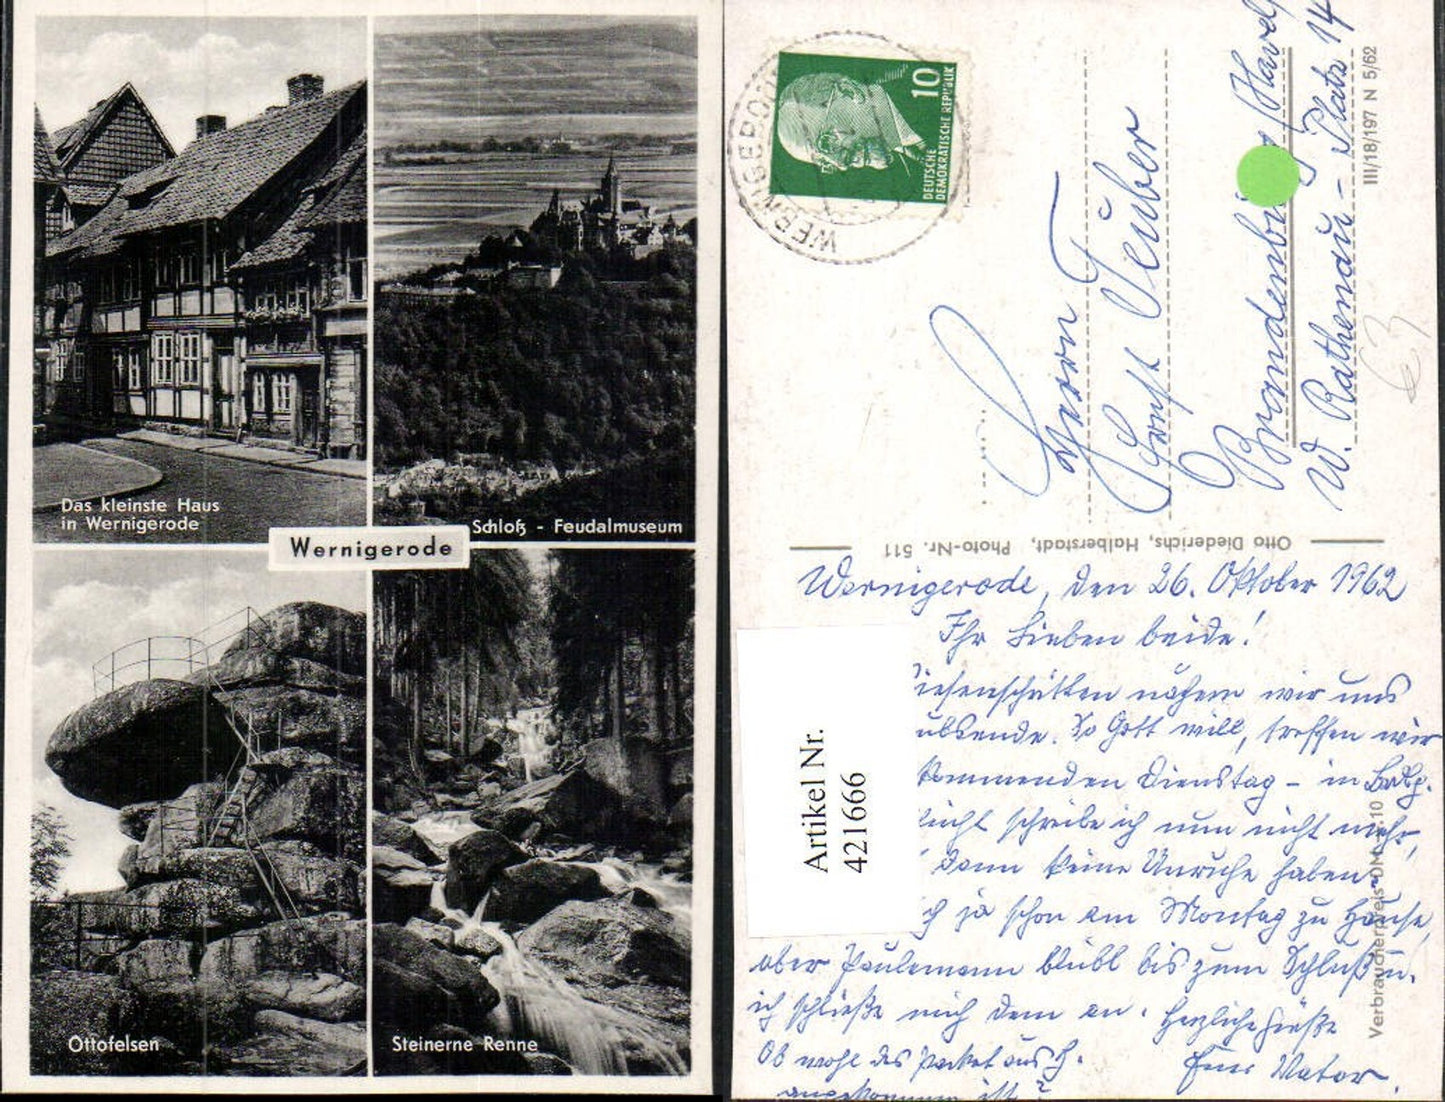 Das kleinste Haus
in Wernigerode
Schloß - Feudalmuseum
Wernigerode
Ottofelsen
Steinerne Renne
10
DEUTSCHE
DEMOKRATISCHE REPUBLIK
WERNIGERODE
Herrn
Horst Teuber
Brandenburg (Havel)
W. Rathenau-Platz 14
III/18/197 N 5/62
€3
Otto Diederichs, Halberstadt, Photo-Nr. 511
Verbraucherpreis DM 10
Artikel Nr.
421666
Wernigerode, den 26. Oktober 1962
Ihr Lieben beide!
nähern wir uns
So Gott will, treffen wir
kommenden Dienstag - in Brbg.
schreibe ich nun nicht mehr,
dann keine Unruhe haben
ja schon am Montag zu Hause,
aber Paulemann bleibt bis zum Schluß u.
ich schließe mich dem an. Herzliche Grüße
Ob wohl das Paket aus H. Euer Vater.
angekommen ist?